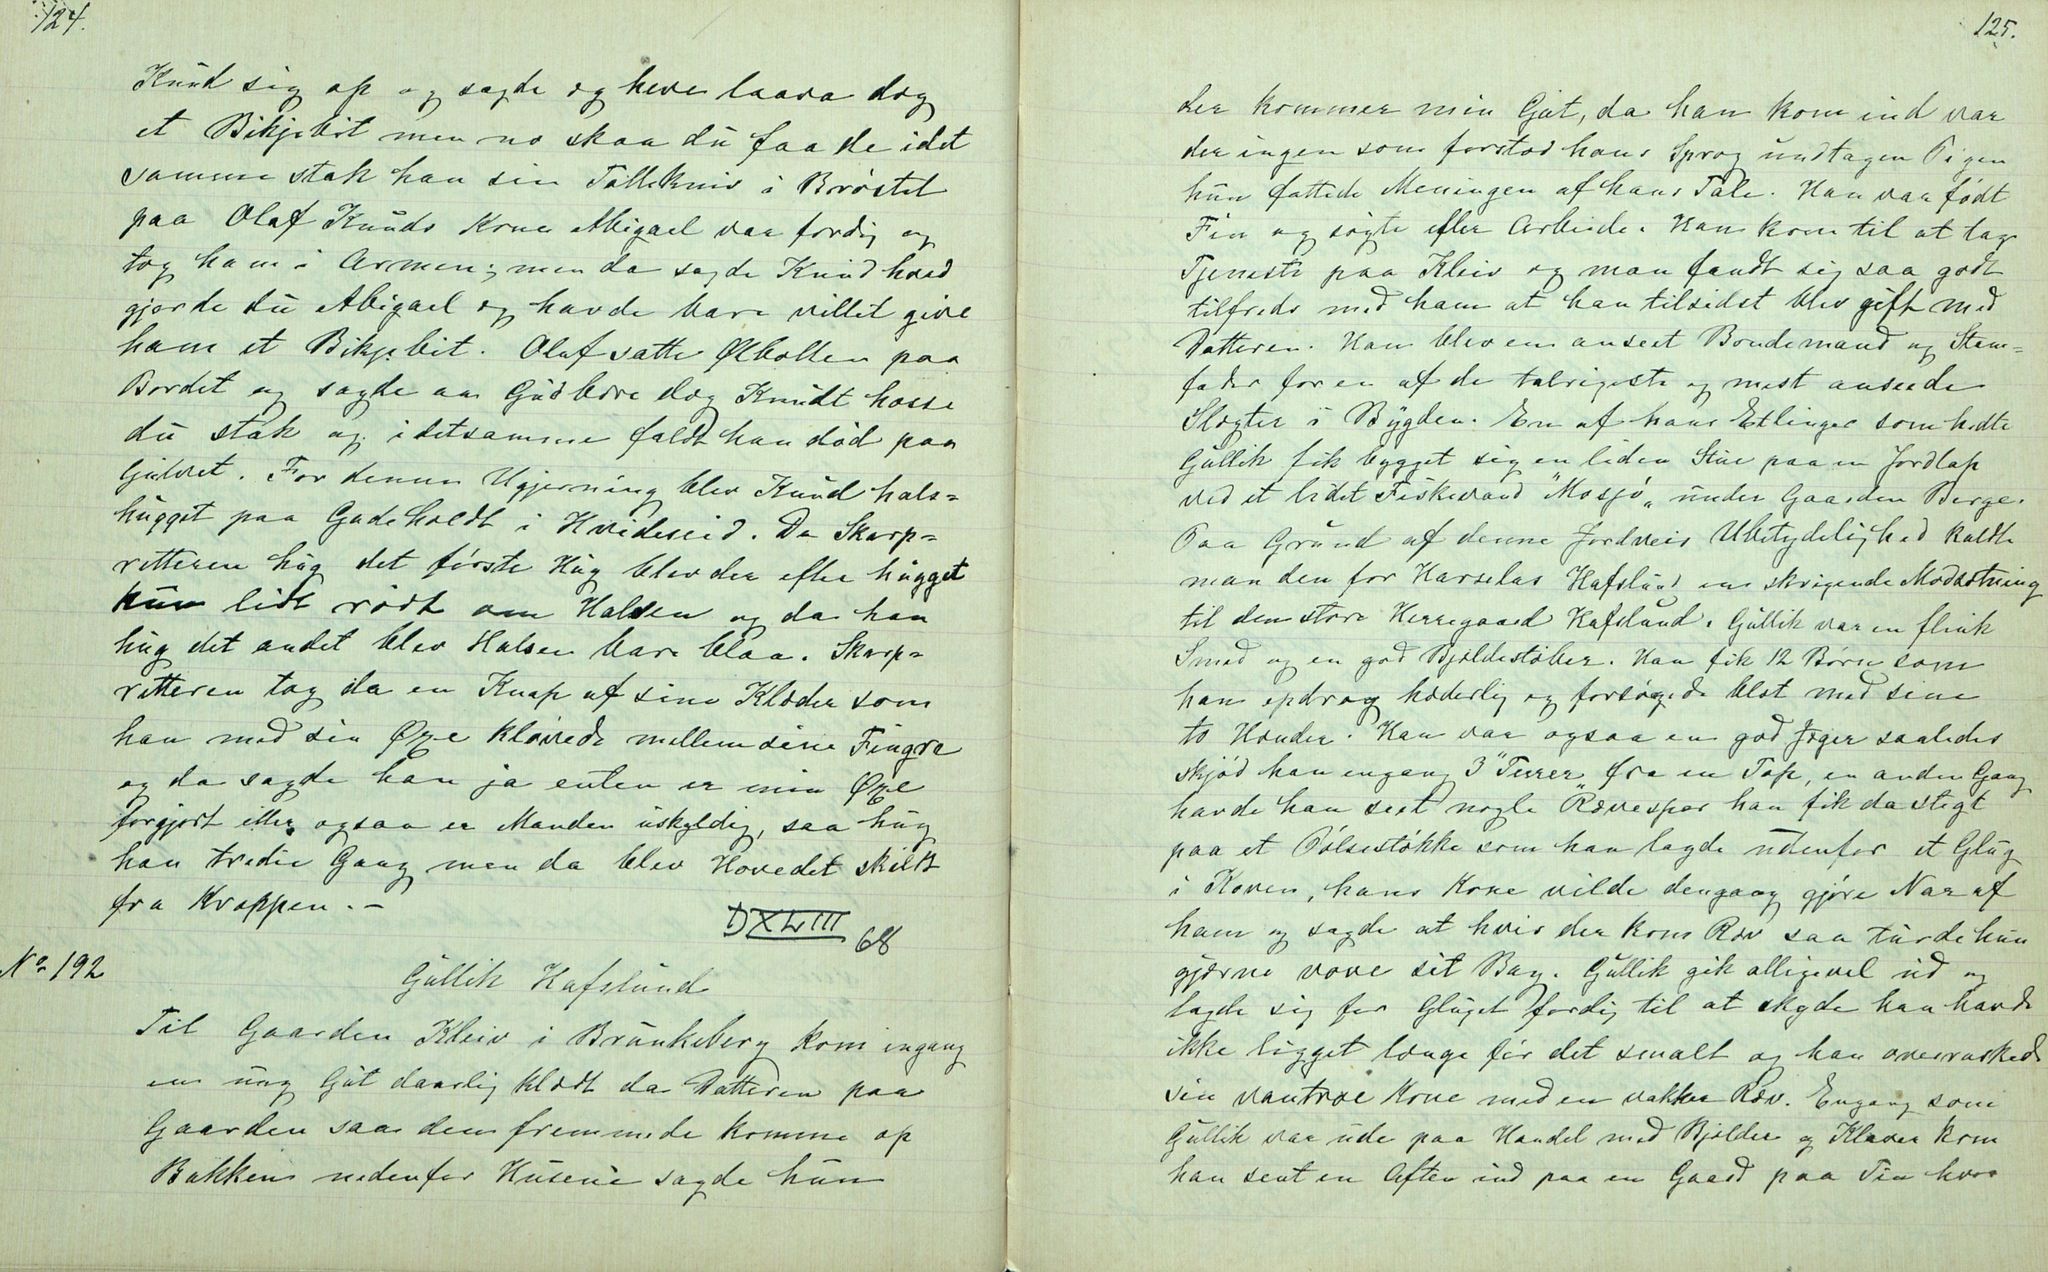 124.
Knud sig op og sagde eg heve laava dæg
et Bikjebit men no skaa du faa de idet
samme stak han sin Tollekniv i Brøstet
paa Olaf Knuds Kone Abigael var færdig og
tog ham i Armen; men da sagde Knud hvad
gjorde du Abigael eg havde bare villet give
ham et Bikjebit. Olaf satte Ølbollen paa
Bordet og sagde aa Gud bære dæg Knudt hosse
du stak og i detsamme faldt han død paa
Gulvet. For denne Ugjerning blev Knud hals-
hugget paa Godeholdt i Hvideseid. Da Skarp-
retteren hug det første Hug blev der efter hugget
kun lidt rødt om Halsen og da han
hug det andet blev Halsen bare blaa. Skarp-
retteren tog da en Knap af sine Klæder som
han med sin Øxe kløvede mellem sine Fingre
og da sagde han ja enten er min Øxe
forgjort eller ogsaa er Manden uskyldig, saa hug
han tredie Gang men da blev Hovedet skildt
fra Kroppen. –
DXLIII 68
No 192
Gullik Hafslund
Til Gaarden Kleiv i Brunkeberg kom engang
en ung Gut daarlig klædt da Datteren paa
Gaarden saa den fremmede komme op
Bakken nedenfor Husene sagde hun
125.
der kommer min Gut, da han kom ind var
der ingen som forstod hans Sprog undtagen Pigen
hun fattede Meningen af hans Tale. Han var født
Fin og søgte efter Arbeide. Han kom til at tage
Tjeneste paa Kleiv og man fandt sig saa godt
tilfreds med ham at han tilsidst blev gift med
Datteren. Han blev en anseet Bondemand og Stam-
fader for en af de talrigeste og mest anseede
Slægter i Bygden. En af hans Etlinger som hedte
Gullik fik bygget sig en liden Stue paa en Jordlap
ved et lidet Fiskevand "Mosjø„ under Gaarden Berge.
Paa Grund af denne Jordveis Ubetydelighed kaldte
man den for Harselas Hafslund en skrigende Modsætning
til den store Herregaard Hafslund. Gullik var en flink
Smed og en god Bjøldestøber. Han fik 12 Børn som
han opdrog hæderlig og forsørgede blot med sine
to Hænder. Han var ogsaa en god Jæger saaledes
skjød han engang 3 Teurer fra en Top, en anden Gang
havde han seet nogle Rævespor han fik da stegt
paa et Pølsestøkke som han lagde udenfor et Glug
i Koven, hans Kone vilde dengang gjøre Nar af
ham og sagde at hvis der kom Ræv saa turde hun
gjærne vove sit Bag. Gullik gik alligevel ud og
lagde sig for Gluget færdig til at skyde han havde
ikke ligget længe før det smalt og han overraskede
sin vantroe Kone med en vakker Ræv. Engang som
Gullik var ude paa Handel med Bjølder og Klaver kom
han sent en Aften ind paa en Gaard paa Tin hvor